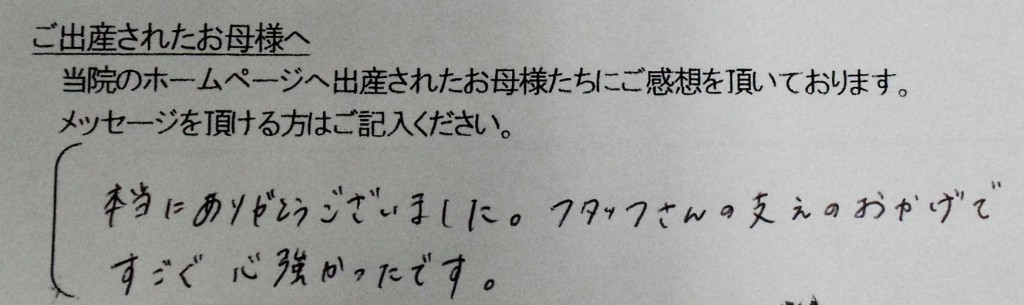 ご出産されたお母様へ
当院のホームページへ出産されたお母様たちにご感想を頂いております。
メッセージを頂ける方はご記入ください。
本当にありがとうございました。スタッフさんの支えのおかげで
すごく心強かったです。